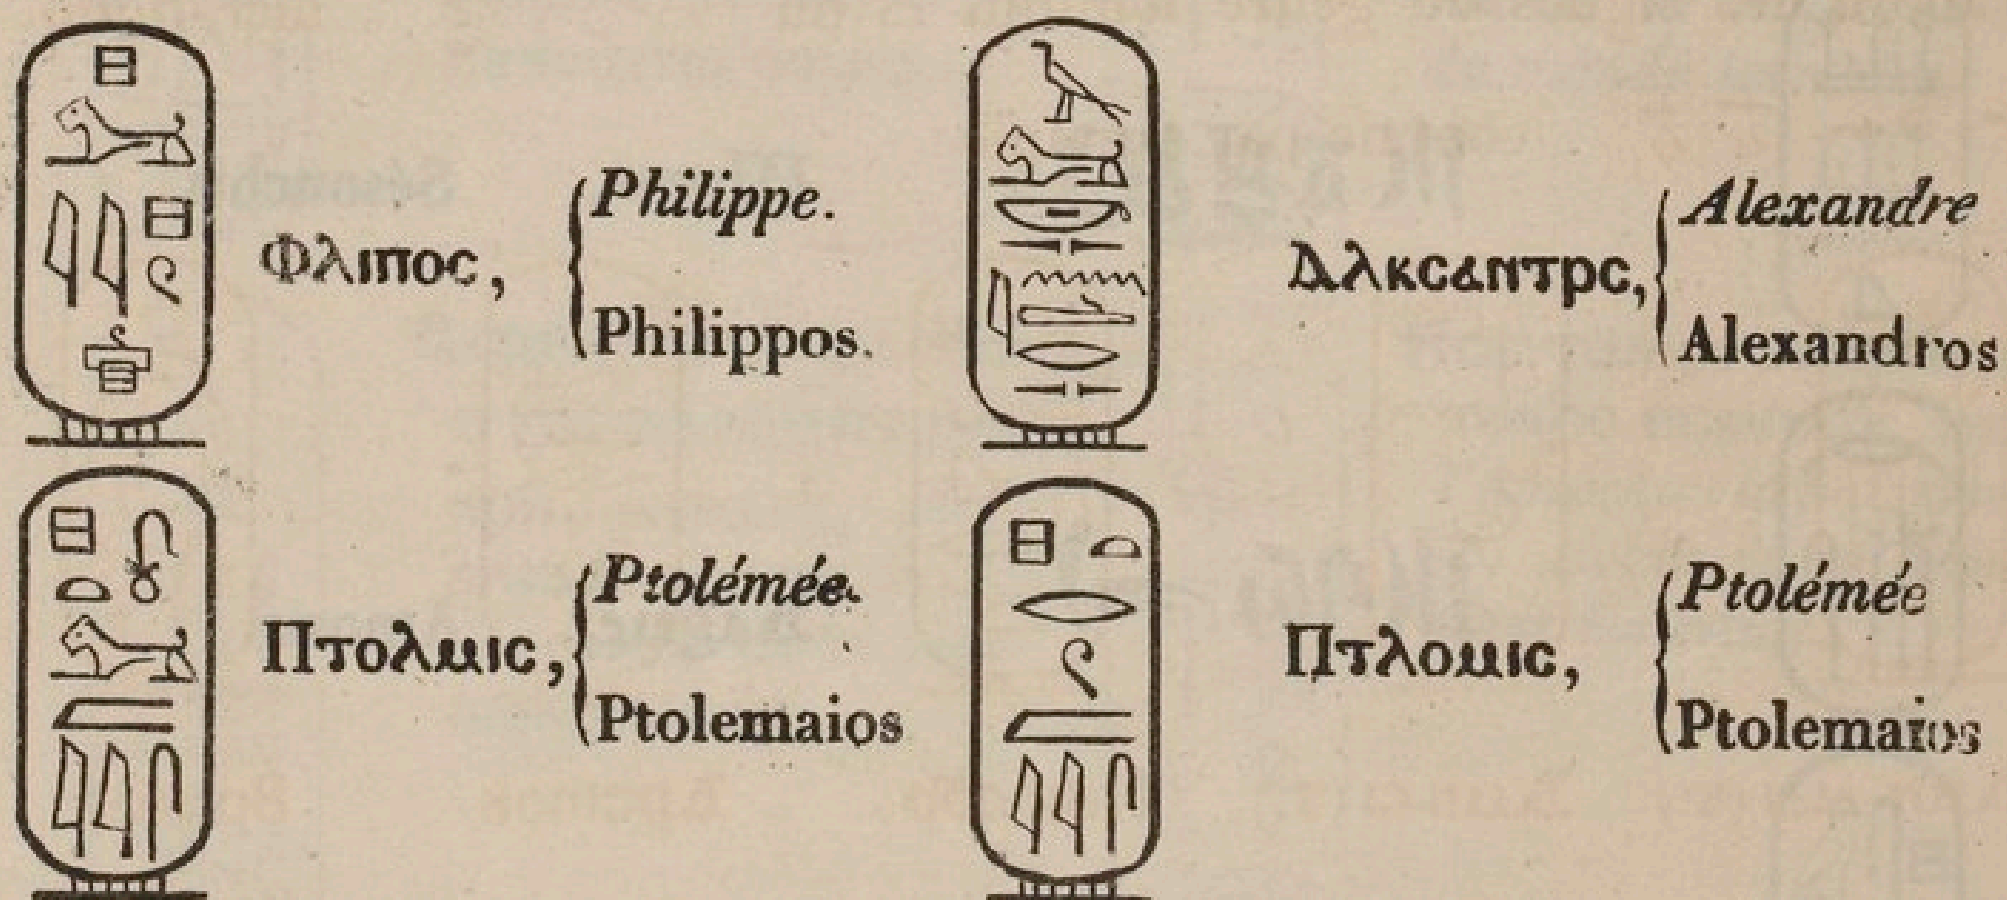 Φλιποc, Philippe. Philippos.
Ⲁλκcⲁⲛτρc, Alexandre Alexandros
Πτολⲙιc, Ptolémée. Ptolemaios
Πτλοⲙιc, Ptolémée Ptolemaios